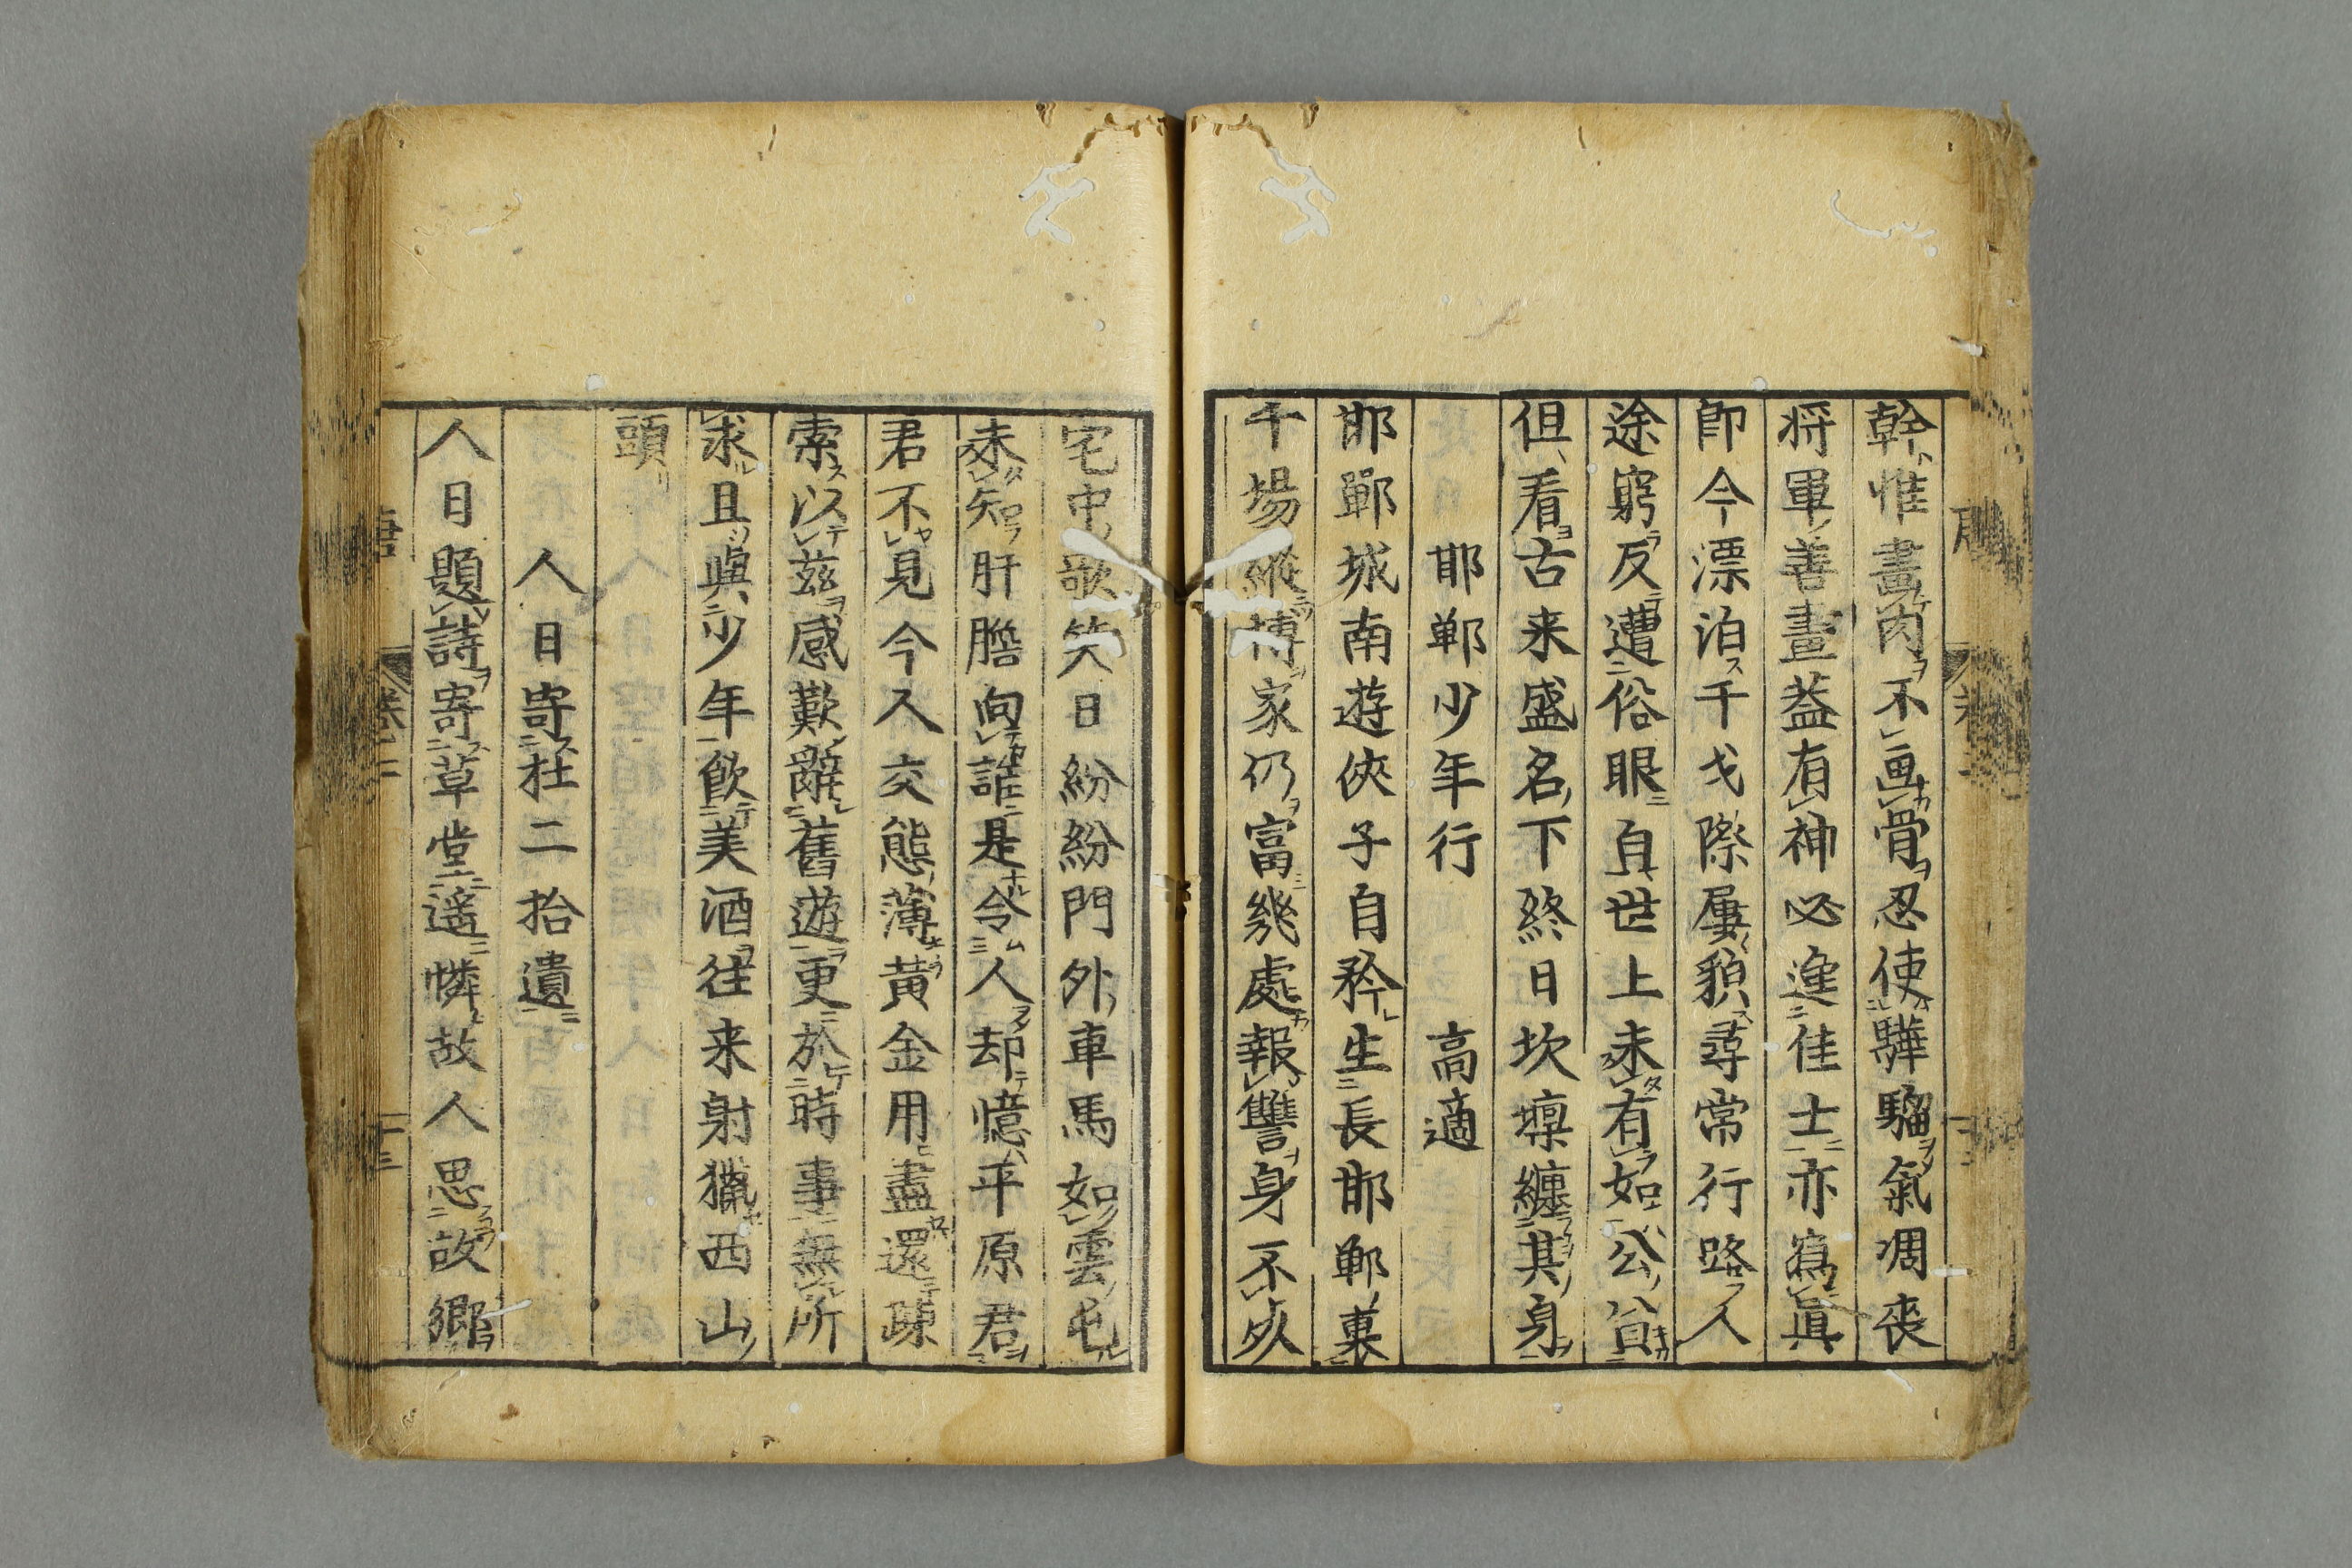 幹惟畫肉不画骨忍使驊騮氣凋喪
将軍善畫蓋有神必逢佳士亦寫真
即今漂泊干戈際屢貌尋常行路人
途窮反遭俗眼白世上未有如公貧
但看古来盛名下終日坎壈纏其身
邯鄲少年行　高適
邯鄲城南遊俠子自矜生長邯鄲裏
千場縱博家仍富幾處報讐身不死
宅中歌笑日紛紛門外車馬如雲屯
未知肝膽向誰是令人却憶平原君
君不見今人交態薄黃金用盡還疎
索以茲感歎辭舊遊更於時事無所
求且與少年飲美酒往来射獵西山
頭
人日寄杜二拾遺
人日題詩寄草堂遥憐故人思故鄉